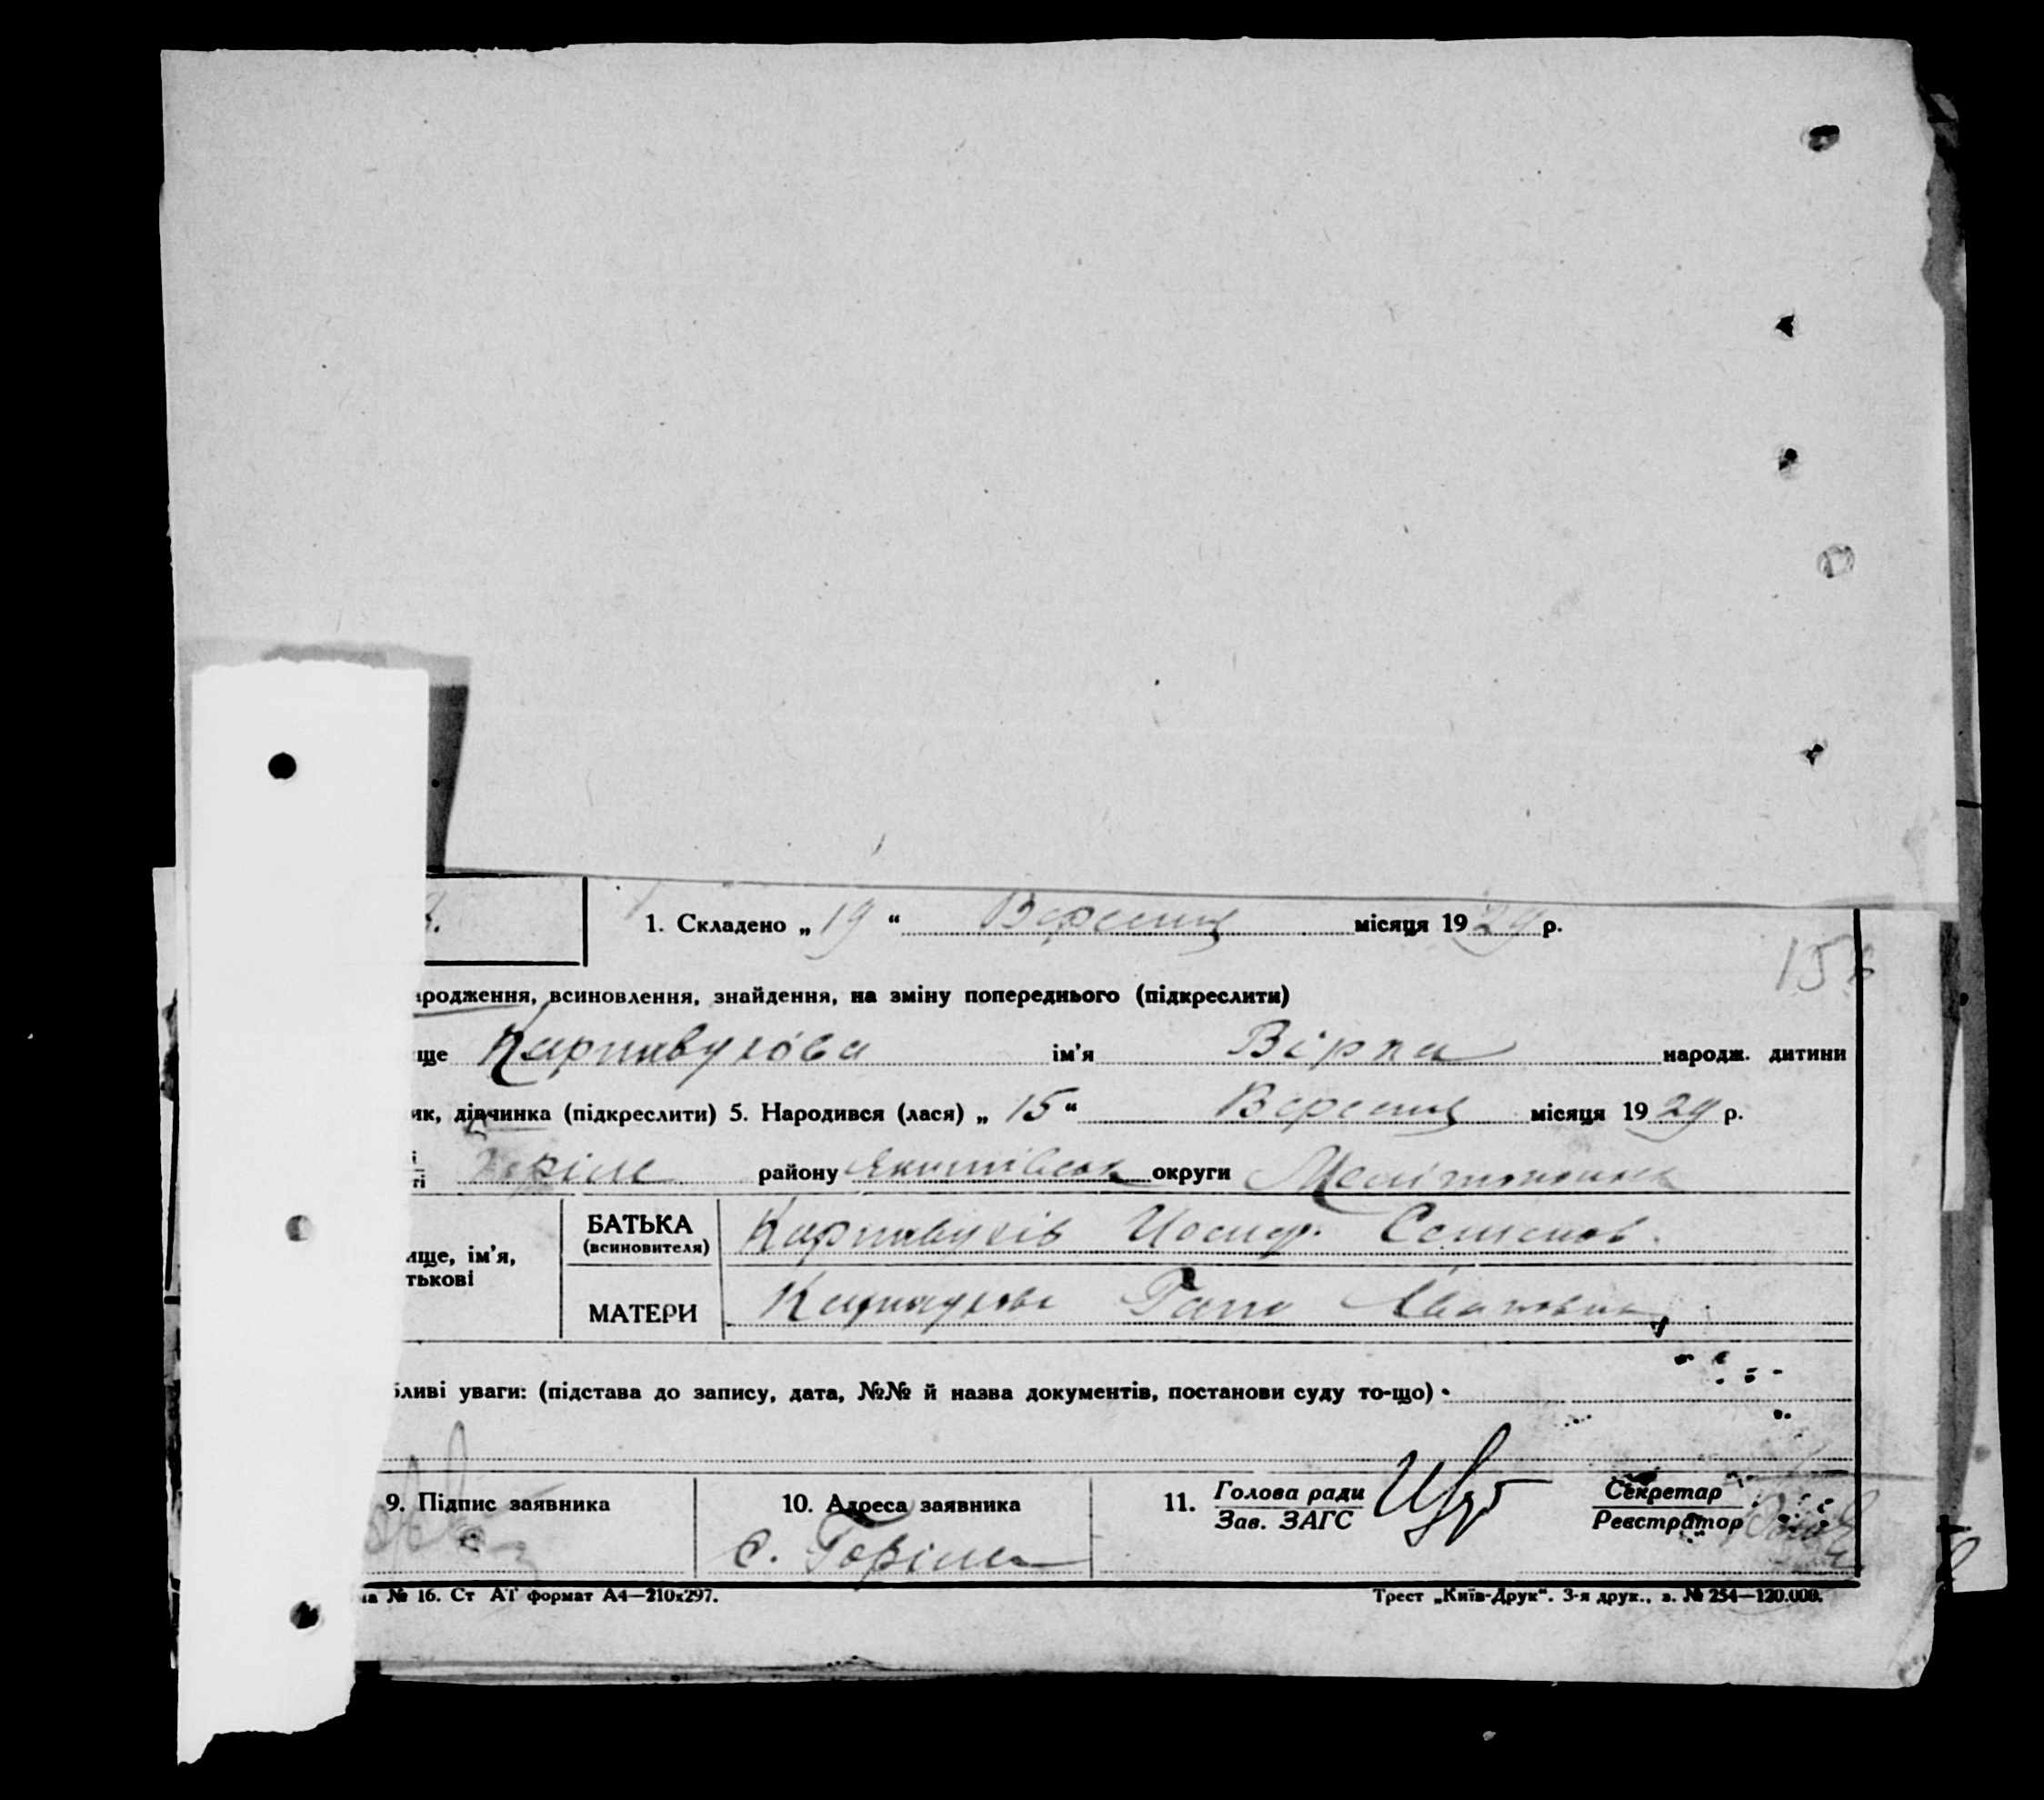 1. Складено „ 19 “ Вересня місяця 1929 р.
15
ародження, всиновлення, знайдення, на зміну попереднього (підкреслити)
ще Картавухова ім'я Вірка народж. дитини
ик, дівчинка (підкреслити) 5. Народився (лася) „ 15 “ Вересня місяця 1929 р.
району округи
БАТЬКА
(всиновителя)
Картавухів Йосиф. Семенов.
ище, ім'я,
тькові
МАТЕРИ
бливі уваги: (підстава до запису, дата, №№ й назва документів, постанови суду то-що)
9. Підпис заявника 10. Адреса заявника 11. Голова ради Секретар
Зав. ЗАГС Реєстратор
с. Горіле
а № 16. Ст АТ формат А4—210x297. Трест „Київ-Друк“. 3-я друк., з. № 254—120.000.